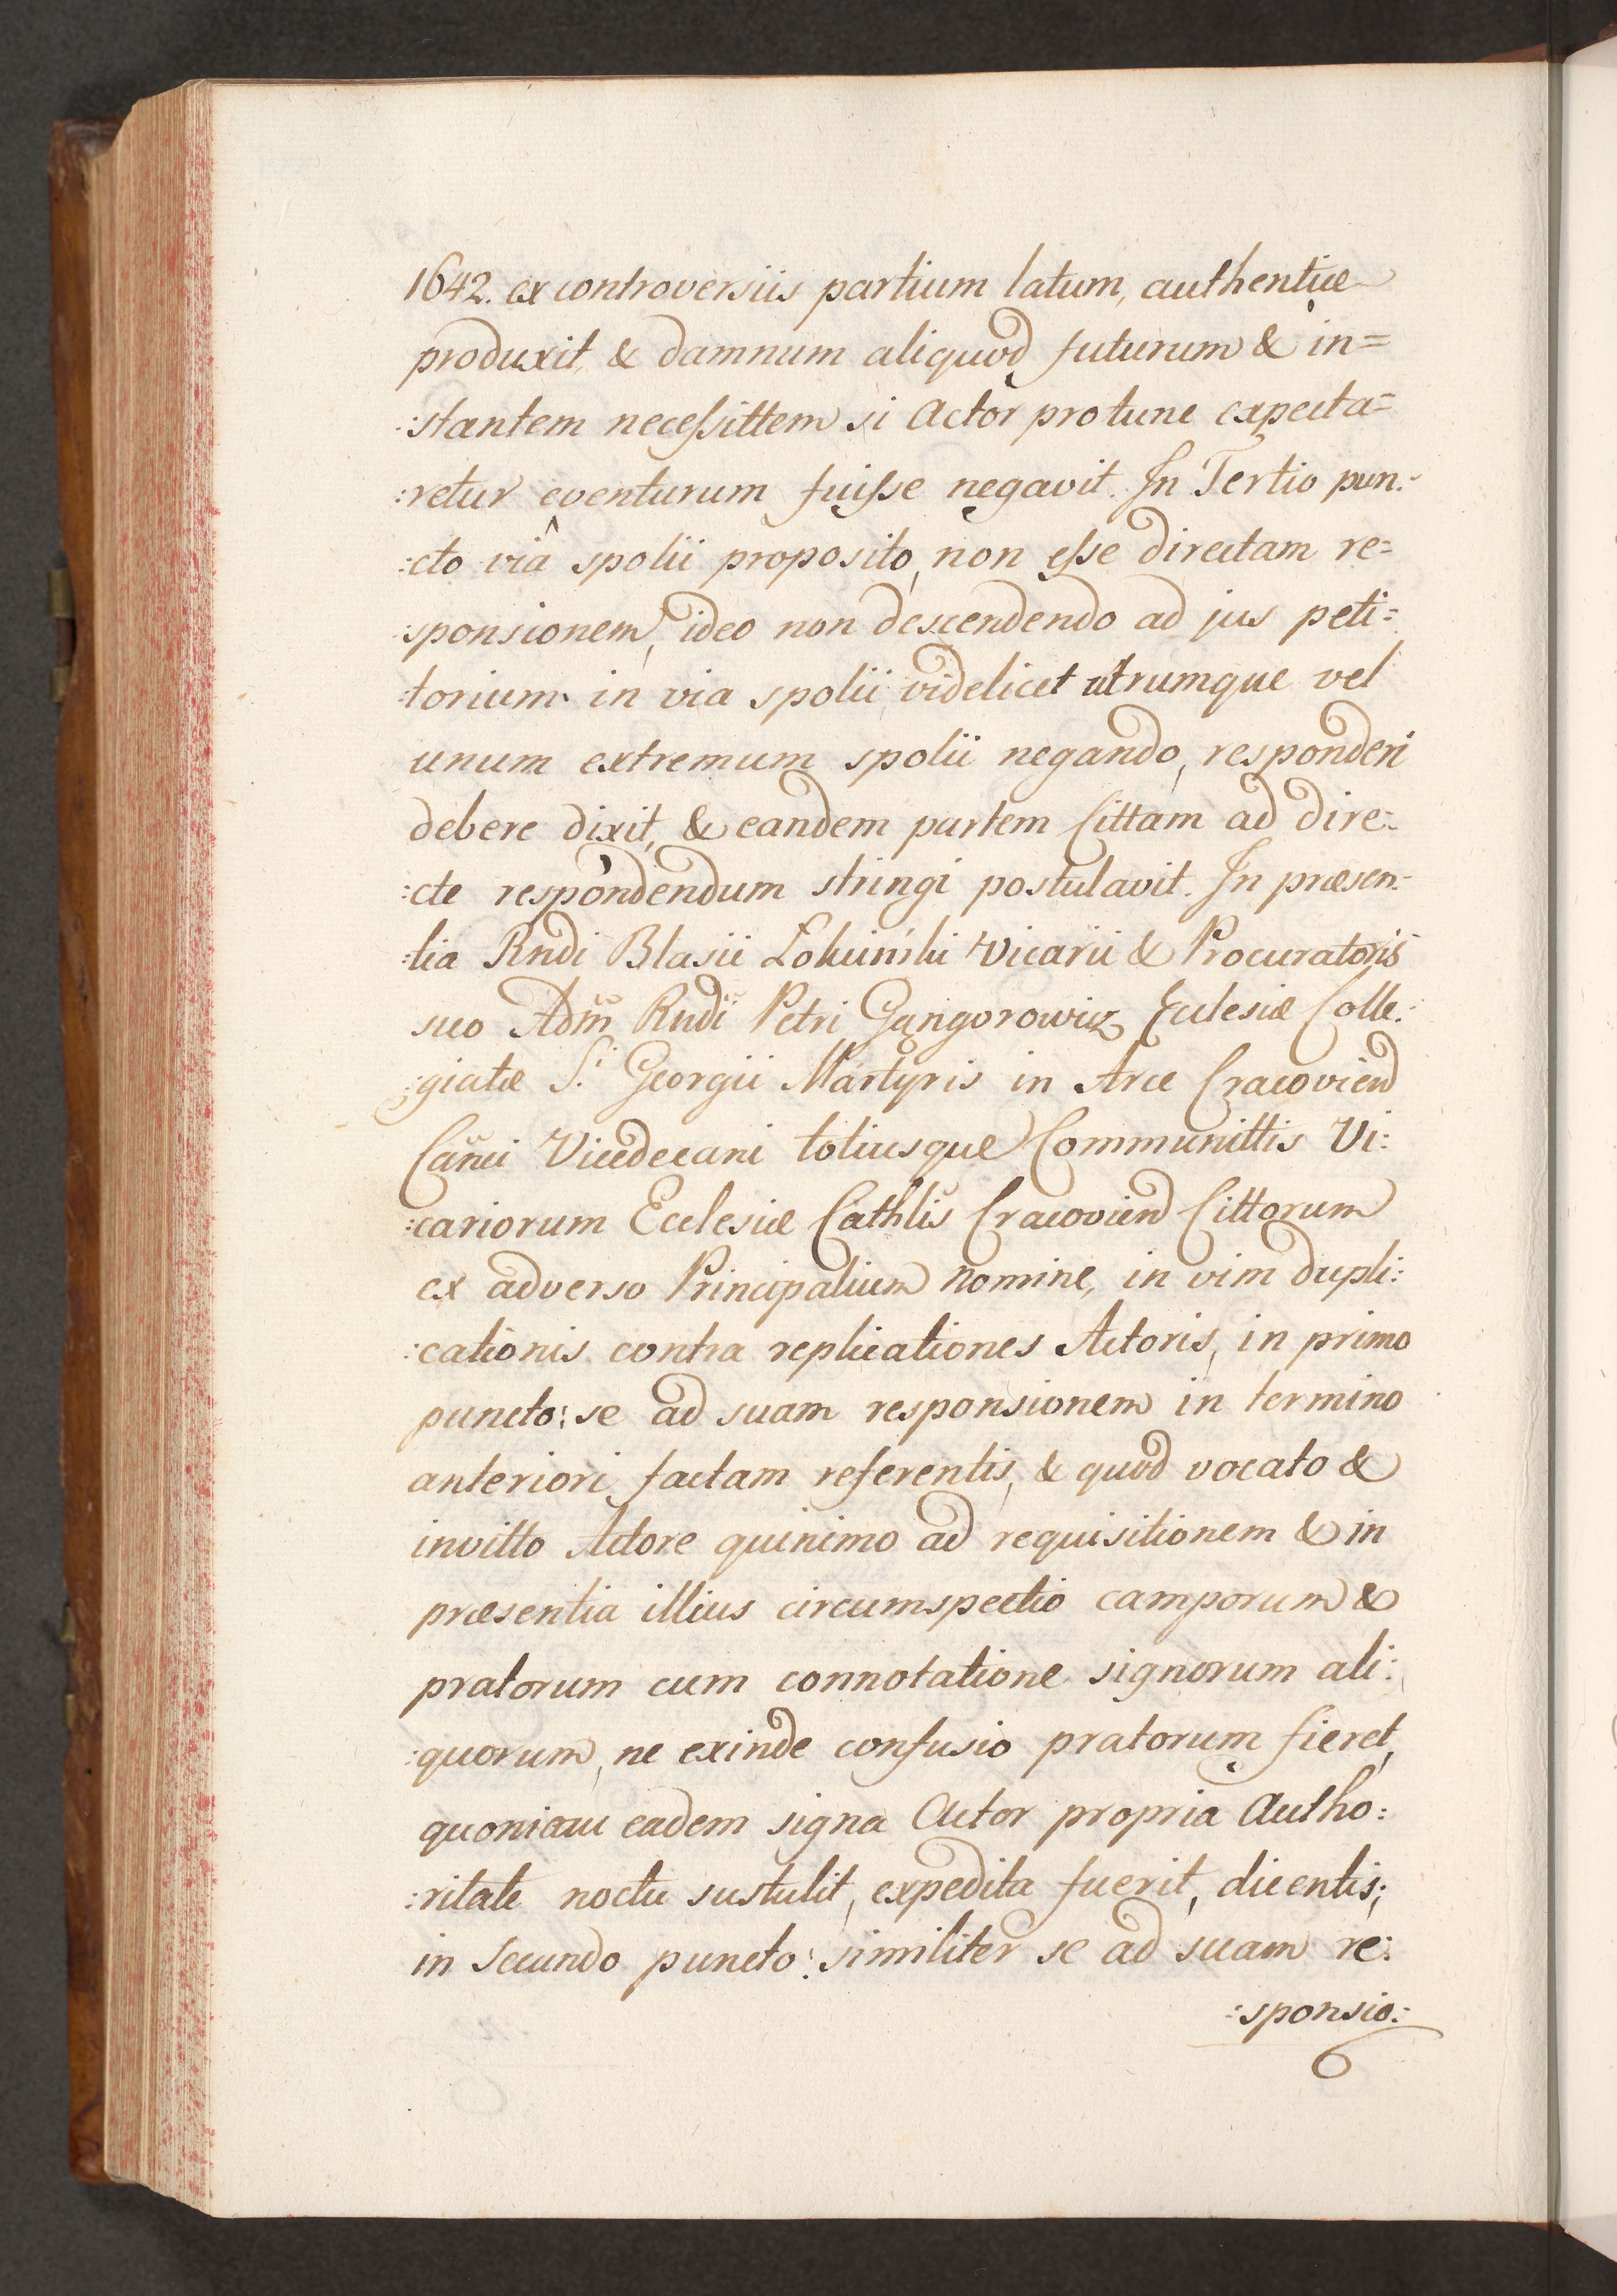 1642. ex controversiis partium latum, authentice
produxit, & damnum aliquod futurum & in=
:stantem necessittem si Actor pro tunc expecta=
:retur eventurum fuisse negavit. In Tertio pun:
:cto viâ spolii proposito, non esse directam re=
:sponsionem, ideo non descendendo ad jus peti=
:torium in via spolii videlicet utrumque vel
unum extremum spolii negando, responderi
debere dixit, & eandem partem Cittam ad dire:
:cte respondendum stringi postulavit. In præsen:
:tia Rndi Blasii Vicarii & Procuratoris
suo Adm Rndi Petri Gąngorowicz Ecclesiæ Colle:
:giatæ S. Georgii Martyris in Arce Cracovien
Canci Vicedecani totiusque Communittis Vi:
:cariorum Ecclesiæ Cathlis Cracovien Cittorum
ex adverso Principalium nomine, in vim dupli:
:cationis contra replicationes Actoris, in primo
puncto: se ad suam responsionem in termino
anteriori factam referentis, & quod vocato &
invitto Actore quinimo ad requisitionem & in
præsentia illius circumspectio camporum &
pratorum cum connotatione signorum ali:
:quorum, ne exinde confusio pratorum fieret,
quoniam eadem signa Actor propria Autho:
:ritate noctu sustulit, expedita fuerit, dicentis;
in secundo puncto: similiter se ad suam re:
:sponsio: